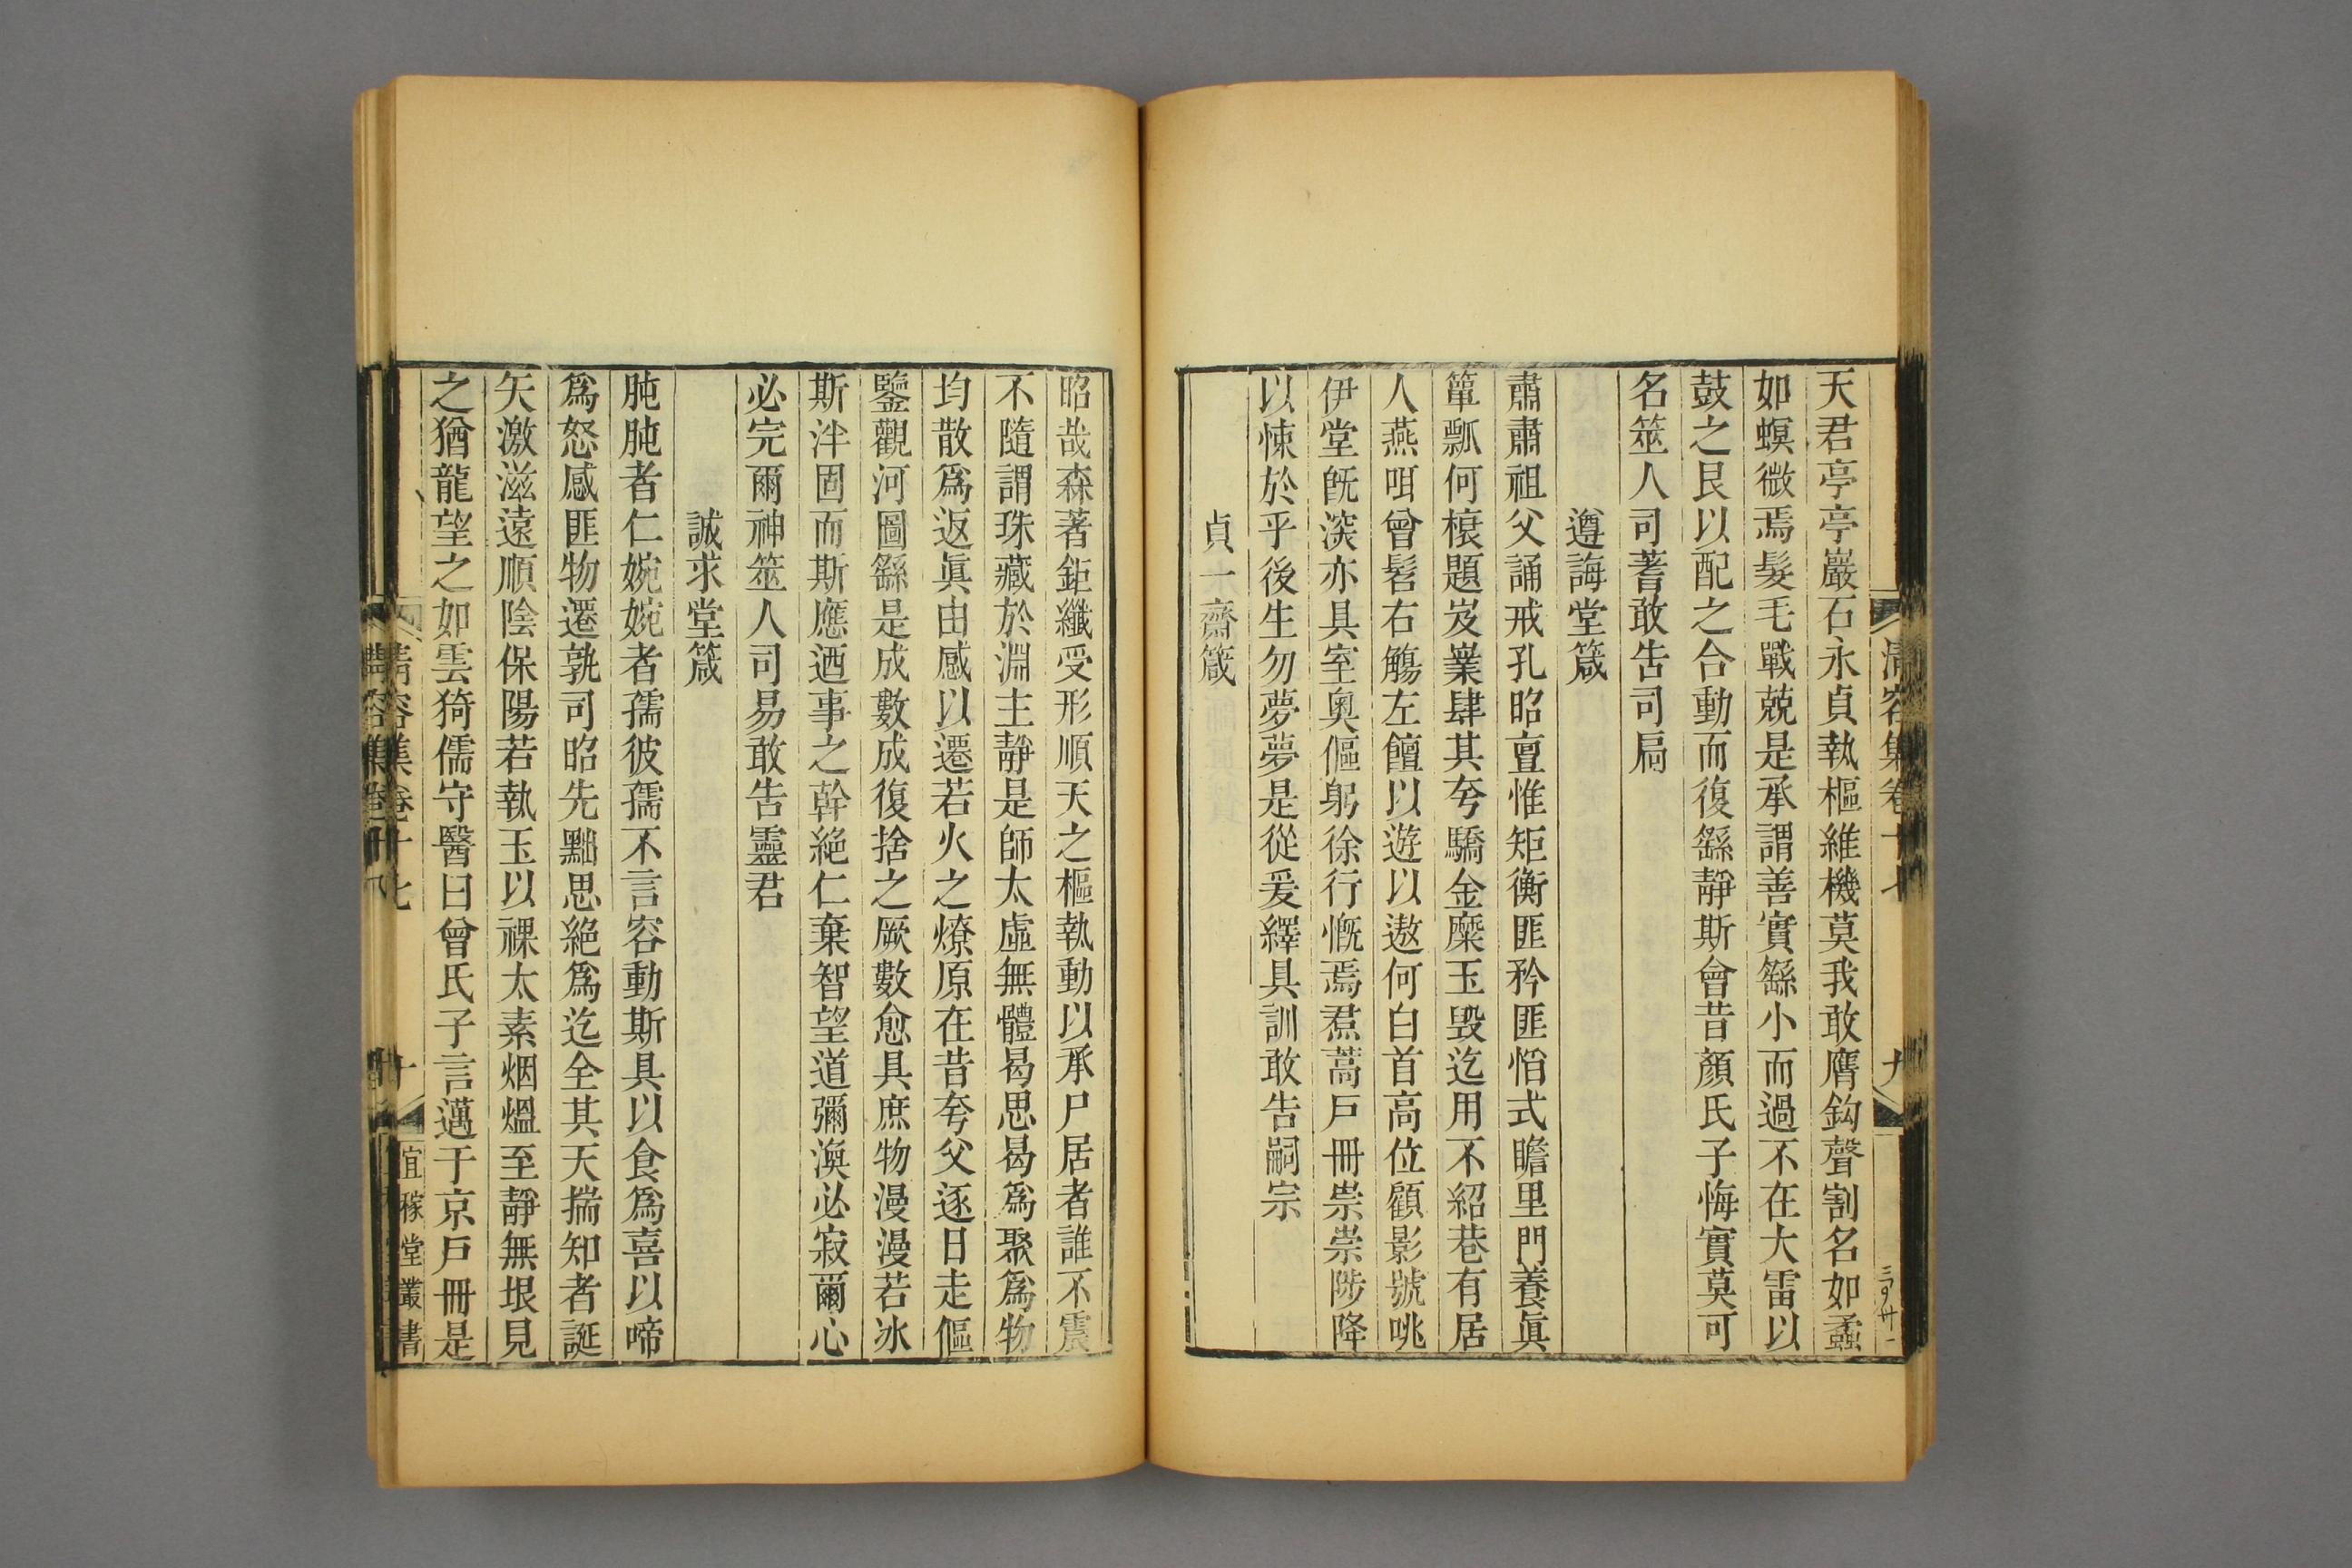 天君亭亭巖石永貞執樞維機莫我敢膺鈎聲割名如蟊
如螟微焉髮毛戰兢是承謂善實繇小而過不在大雷以
鼓之艮以配之合動而復繇靜斯會昔顏氏子悔實莫可
名筮人司蓍敢告司扃
遵誨堂箴
肅肅祖父誦戒孔昭亶惟矩衡匪矜匪慆式瞻里門養眞
簞瓢何榱題岌嶪肆其夸驕金糜玉毀迄用不紹巷有居
人燕咡曾髫右觴左饘以遊以遨何白首高位顧影號咷
伊堂旣深亦具室奧傴躬徐行慨焉焄蒿戸冊祟祟陟降
以悚於乎後生勿夢夢是從爰繹具訓敢告嗣宗
貞一齋箴
清容集卷十七
九
昭哉森著鉅纖受形順天之樞執動以承尸居者誰不震
不隨謂珠藏於淵主靜是師太虛無體曷思曷爲聚爲物
均散爲返眞由感以遷若火之燎原在昔夸父逐日走傴
鑒觀河圖繇是成數成復捨之厥數愈具庶物漫漫若冰
斯泮固而斯應迺事之幹絶仁棄智望道彌渙必寂爾心
必完爾神筮人司易敢告靈君
誠求堂箴
肫肫者仁婉婉者孺彼孺不言容動斯具以食爲喜以啼
爲怒感匪物遷孰司昭先黜思絶爲迄全其天揣知者誕
矢激滋遠順陰保陽若執玉以祼太素烟熅至靜無垠見
之猶龍望之如雲猗儒守醫曰曾氏子言邁于京戸冊是
清容集卷十七
十
宜稼堂叢書